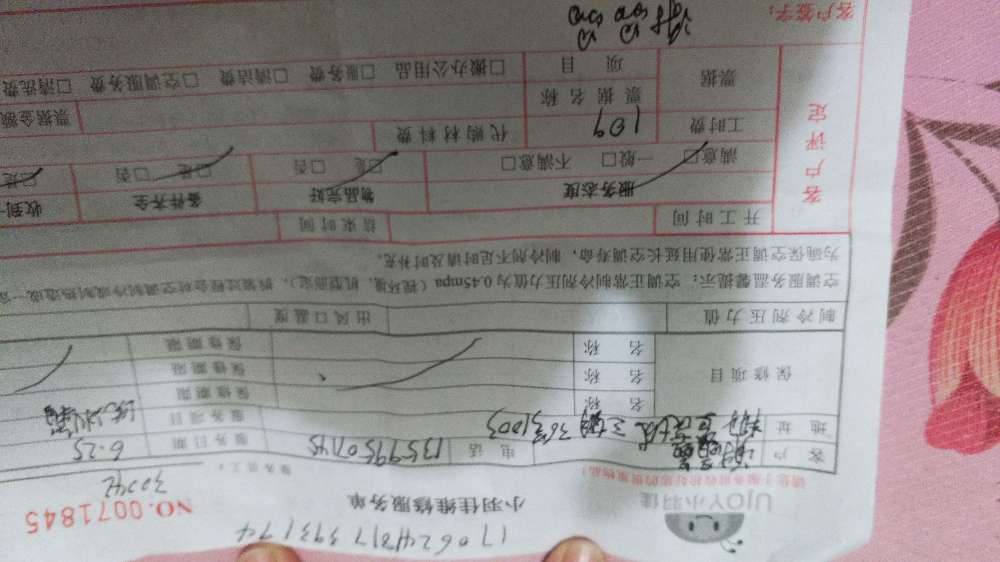 17062481739 3174
UJOY小羽佳
请您于服务前收拾好您的贵重物品!
小羽佳维修服务单
NO.0071845
服务员工: 30742
客户 电话 13599507145 服务日期 6.25
地址 36号1003 服务项目
保修项目 名称 保修期限
名称 保修期限
名称 保修期限
制冷剂压力值 出风口温度
空调服务温馨提示:空调正常制冷剂压力值为0.45mpa(视环境、机型而定),拆装过程会对空调制冷或制热造成一
为确保空调正常使用延长空调寿命,制冷剂不足时请及时补充。
开工时间 结束时间
客户评定
服务态度 物品完好 备件齐全 收到
满意□ 一般□ 不满意□ □是 □否 □是 □否 □是
工时费 109 代购材料费
票据 票据名称 票据金额
项目 □搬办公用品 □服务费 □清洁费 □空调服务费 □清洗费
客户签字: